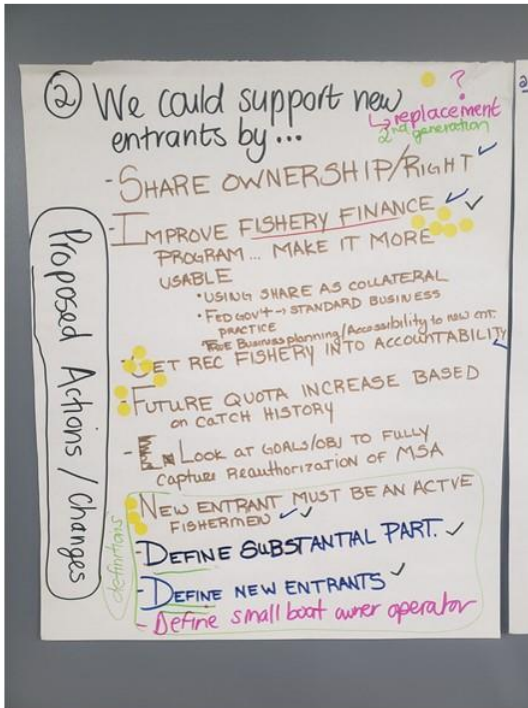 ② We could support new
entrants by...
?
↳ replacement
2nd generation
- SHARE OWNERSHIP/RIGHT ✓
- IMPROVE FISHERY FINANCE ✓ ✓
PROGRAM... MAKE IT MORE
USABLE
• USING SHARE AS COLLATERAL
• FED GOV'T → STANDARD BUSINESS
PRACTICE
Business planning/Accessibility to new ent.
GET REC FISHERY INTO ACCOUNTABILITY ✓
- FUTURE QUOTA INCREASE BASED
on CATCH HISTORY
- Look at GOALS/OBJ TO FULLY
Capture Reauthorization of MSA
NEW ENTRANT MUST BE AN ACTVE
FISHERMEN ✓ ✓
- DEFINE SUBSTANTIAL PART. ✓
- DEFINE NEW ENTRANTS ✓
- Define small boat owner operator
definitions
Proposed Actions / Changes